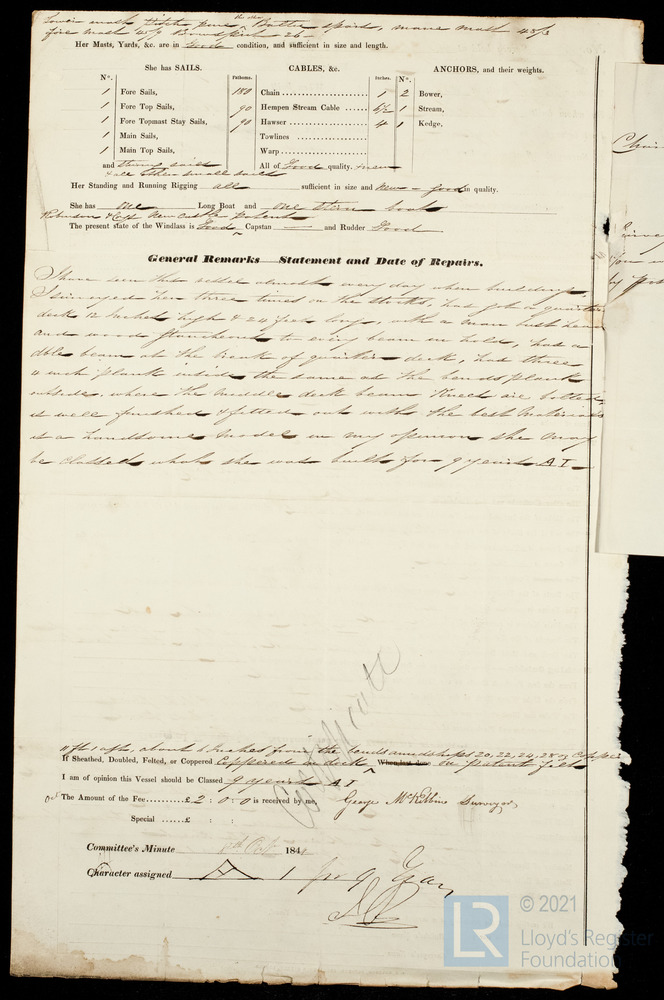 Lower masts pitch pine Baltic spars, main mast
fore mast Bowsprit 26
Her Masts, Yards, &c. are in Good condition, and sufficient in size and length.
She has SAILS. CABLES, &c. ANCHORS, and their weights.
N°. Fathoms. Inches. N°.
1 Fore Sails, 180 Chain 1 2 Bower,
1 Fore Top Sails, 90 Hempen Stream Cable 6½ 1 Stream,
1 Fore Topmast Stay Sails, 90 Hawser 4 1 Kedge,
1 Main Sails, Towlines
1 Main Top Sails, Warp
and All of Good quality. new
& all other small sails
Her Standing and Running Rigging all sufficient in size and New - good in quality.
She has one Long Boat and one stern boat
Robinson & Co New Castle patent
The present state of the Windlass is Good Capstan — and Rudder Good
General Remarks Statement and Date of Repairs.
I have seen this vessel almost every day when building,
I surveyed her three times on the stocks, has got a quarter
deck 12 inches high & 24 feet long, with a man
and wood stanchions to every beam in hold, has a
dble beam at the break of quarter deck, has three
4 inch plank inside the same as the bends plank
outside, where the middle deck beam Knees are bolted
is well finished & fitted out with the best materials
is a handsome model in my opinion she may
be classed what she was built for 9 years A I
about 6 inches from the bends amidships 20, 22, 24, 28 oz Copper
If Sheathed, Doubled, Felted, or Coppered Coppered in dock When last done on patent felt
I am of opinion this Vessel should be Classed 9 years A I
The Amount of the Fee £ 2 : 0 : 0 is received by me, George McKibbin Surveyor
Special £ : :
Committee's Minute 184
Character assigned A 1 for 9 Years
Certificate
LR
© 2021
Lloyd's Register
Foundation